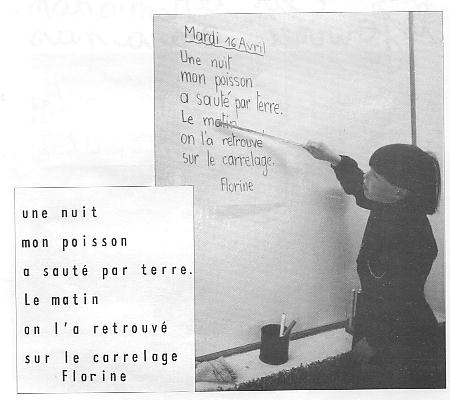 Mardi 16 Avril
Une nuit
mon poisson
a sauté par terre.
Le matin
on l'a retrouvé
sur le carrelage.
Florine
une nuit
mon poisson
a sauté par terre.
Le matin
on l'a retrouvé
sur le carrelage
Florine